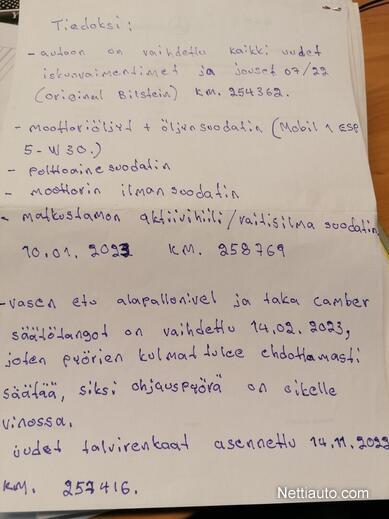 Tiedoksi:
- autoon on vaihdettu kaikki uudet
iskunvaimentimet ja jouset 07/22
(original Bilstein) KM. 254362.
- moottoriöljyt + öljynsuodatin (Mobil 1 ESP
5-W30.)
- polttoainesuodatin
- moottorin ilmansuodatin
- matkustamon aktiivihiili/raitisilma suodatin
10.01.2023 KM. 258769
- vasen etu alapallonivel ja taka camber
säätötangot on vaihdettu 14.02.2023,
joten pyörien kulmat tulee ehdottamasti
säätää, siksi ohjauspyörä on oikelle
vinossa.
uudet talvirenkaat asennettu 14.11.2022
KM. 257416.
Nettiauto.com